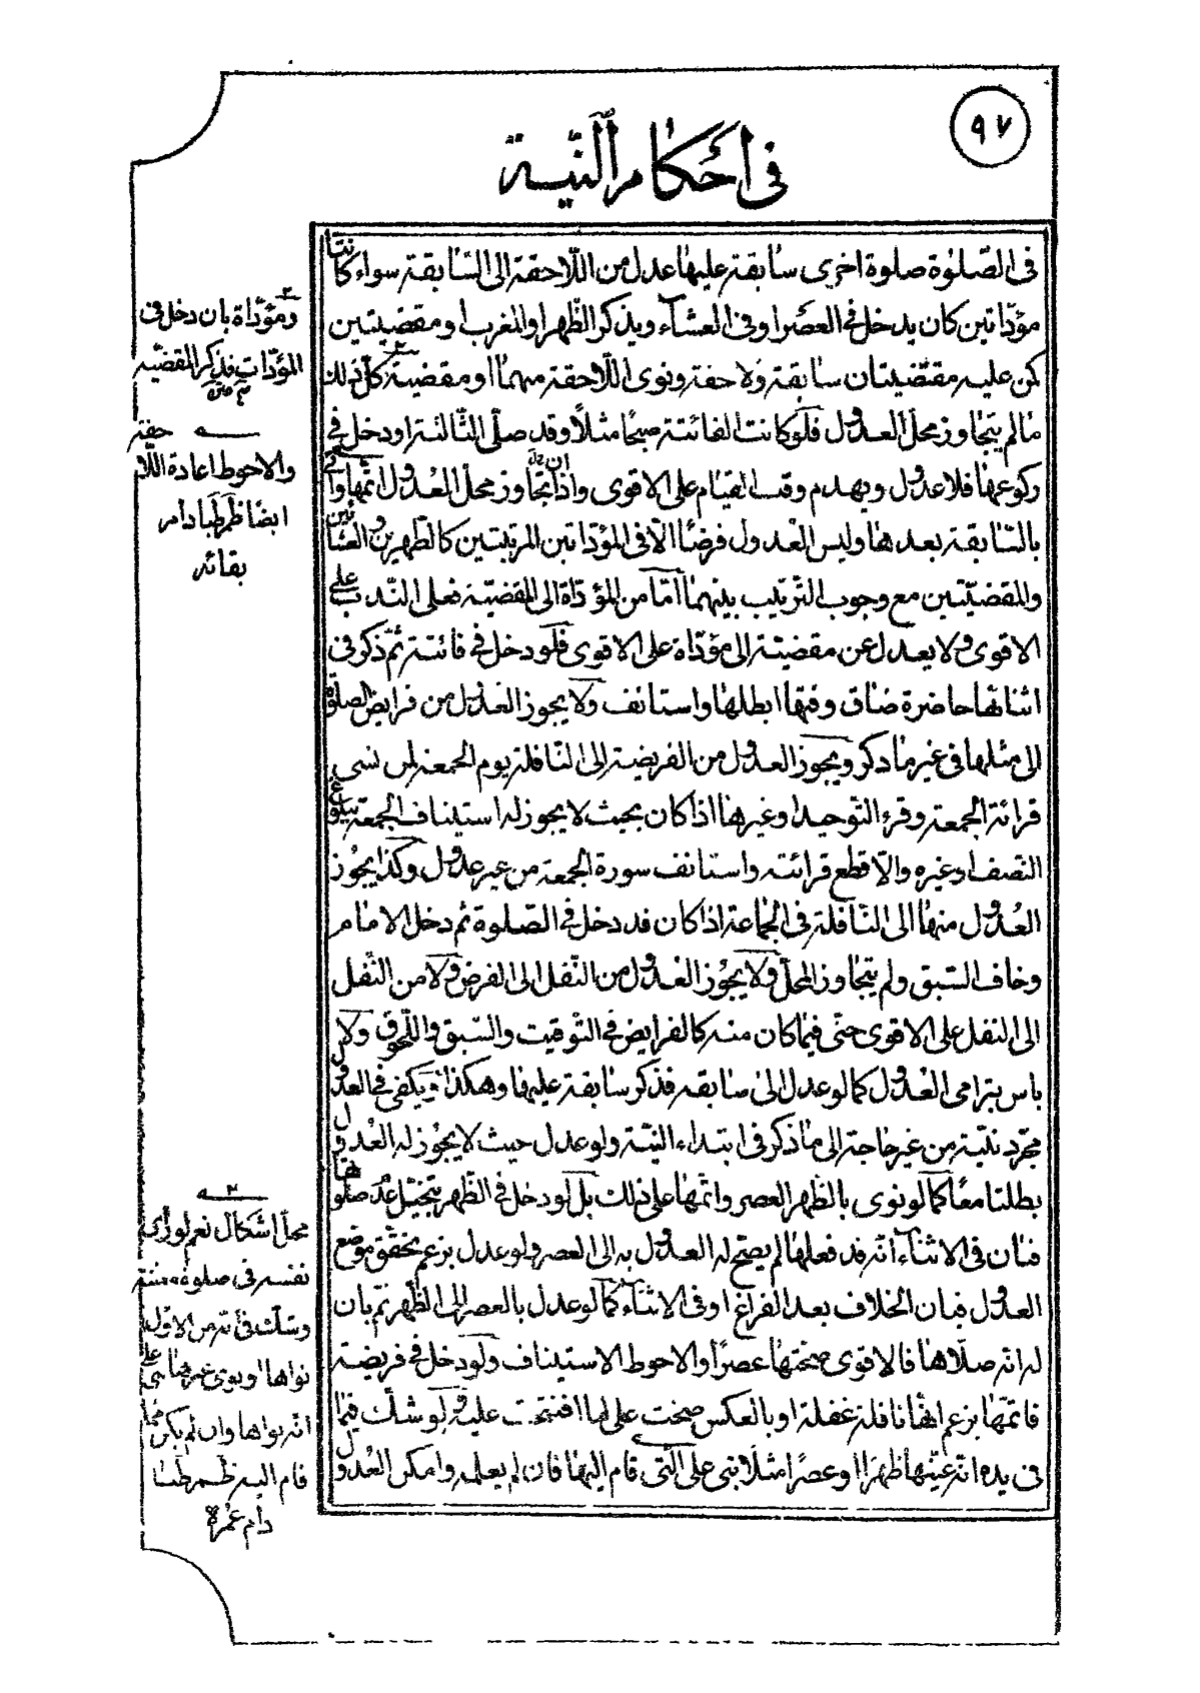 ٩٧
فى احكام النّيـة
فى الصّلوٰة صلوة اخرى سابقة عليها عدل من اللاحقة الى السّابقة سواء كانتا
مؤدّاتين كان يدخل فى العصر او فى العشاء ويذكر الظّهر او المغرب او مقضيتين
كمن عليه مقضيتان سابقة ولاحقة ونوى اللاحقة منهما او مقضية كلّ ذلك
ما لم يتجاوز محل العدول فلو كانت الفائتة صبحًا مثلًا وقد صلّى الثّالثة او دخل فى
ركوعها فلا عدول ويهدم وقت القيام على الاقوى واذا تجاوز محل العدول اتمّها واتى
بالسّابقة بعدها وليس العدول فرضًا الّا فى المؤدّاتين المرتبتين كالظهرين والعشائين
والمقضيّتين مع وجوب الترتيب بينهما امّا من المؤدّاة الى المقضيّة فعلى النّدب على
الاقوى ولا يعدل عن مقضيّة الى مؤدّاة على الاقوى فلو دخل فى فائتة ثمّ ذكر فى
اثنائها حاضرة ضاق وقتها ابطلها واستانف ولا يجوز العدول من فرايض الصلوة
الى مثلها فى غير ما ذكر ويجوز العدول من الفريضة الى النّافلة يوم الجمعة لمن نسى
قرائة الجمعة وقرء التّوحيد او غيرها اذا كان بحيث لا يجوز له استيناف الجمعة ببلوغ
النّصف او غيره والّا قطع قرائته واستانف سورة الجمعة من غير عدول وكذا يجوز
العدول منها الى النّافلة فى الجماعة اذا كان قد دخل فى الصّلوة ثم دخل الامام
وخاف السّبق ولم يتجاوز المحلّ ولا يجوز العدول من النّفل الى الفرض ولا من النّفل
الى النفل على الاقوى حتّى فيما كان منه كالفرايض فى التّوقيت والسّبق واللّحوق ولا
باس بترامى العدول كما لو عدل الى سابقة فذكر سابقة عليها وهكذا ويكفى فى العدول
مجرّد نيّته من غير حاجة الى ما ذكر فى ابتداء النيّة ولو عدل حيث لا يجوز له العدول
بطلتا معًا كما لو نوى بالظّهر العصر واتمّها على ذلك بل لو دخل فى الظّهر بتخيّل عدم صلوتها
فبان فى الاثناء انّه قد فعلها لم يصحّ له العدول به الى العصر ولو عدل بزعم تحقّق موضع
العدول فبان الخلاف بعد الفراغ او فى الاثناء كما لو عدل بالعصر الى الظّهر ثم بان
له انّه صلّاها فالاقوى صحّتها عصرًا والاحوط الاستيناف ولو دخل فى فريضة
فاتمّها بزعم انّها نافلة غفلة او بالعكس صحّت على ما افتتحت عليه ولو شكّ فيما
فى يده انّه عيّنها ظهرًا او عصرًا مثلًا بنى على الّتى قام اليها فان لم يعلمه وامكن العدول
ومؤدّاة بان دخل فى
المؤدّات فذكر المقضيّة
والاحوط اعادة اللّاحقة
ايضًا ظم طبا دام
بقائه
محلّ اشكال نعم لو رأى
نفسه فى صلوة معيّنة
وشكّ فى انّه من الاوّل
نواها او نوى غيرها بنى على
انّه نواها وان لم يكن ممّا
قام اليه ظم طبا
دام عمره